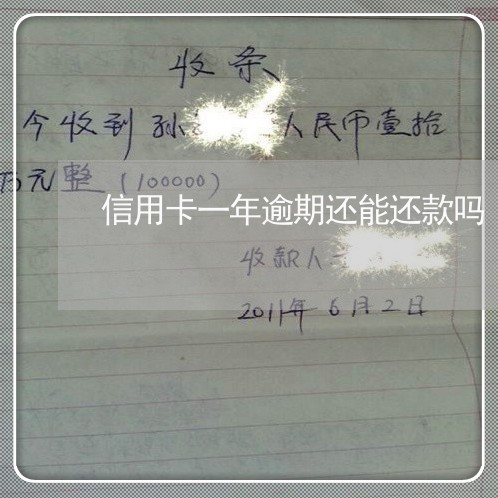 收条
今收到孙人民币壹拾
万元整（100000）
信用卡一年逾期还能还款吗
收款人
2011年6月2日